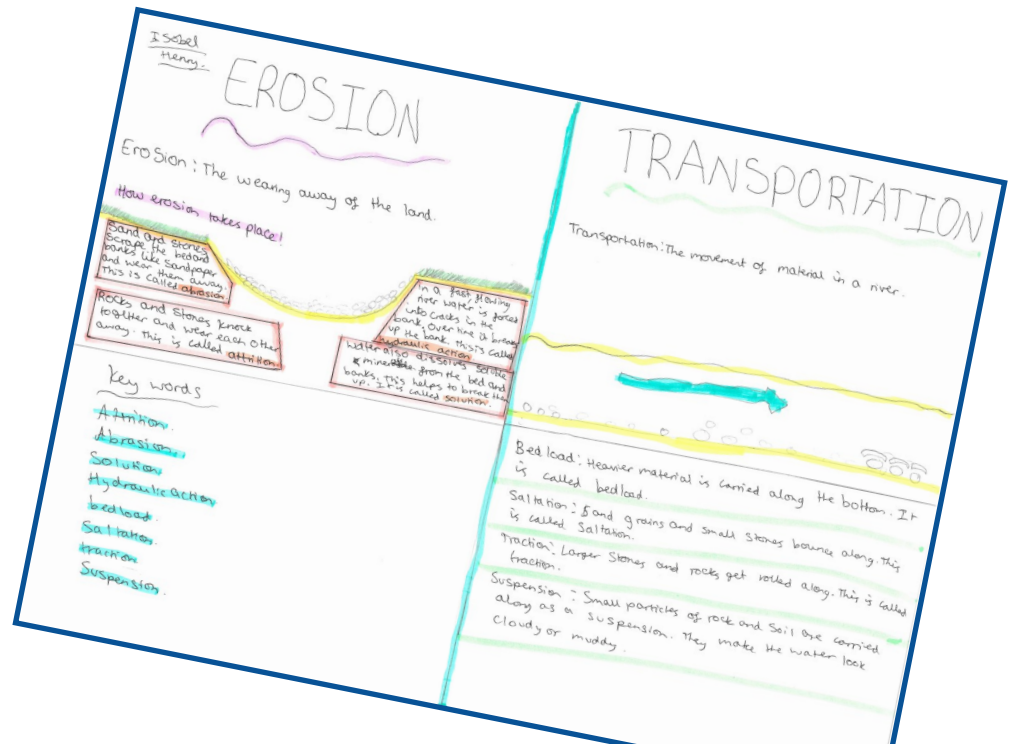 Isobel
Henry.
EROSION
Erosion: The wearing away of the land.
How erosion takes place!
Sand and stones
scrape the bed and
banks like sandpaper
and wear them away.
This is called abrasion.
Rocks and Stones knock
together and wear each other
away. This is called attrition.
In a fast flowing
river water is forced
into cracks in the
bank. Over time is breaks
up the bank. This is called
hydraulic action
Water also dissolves soluble
from the bed and
banks. This helps to break them
up. It is called solution.
Key words
Attrition.
Abrasion.
Solution
Hydraulic action
bedload.
Saltation.
traction
Suspension.
TRANSPORTATION
Transportation: The movement of material in a river.
Bed load: Heavier material is carried along the bottom. It
is called bedload.
Saltation: Sand grains and small stones bounce along. This
is called Saltation.
Traction: Larger Stones and rocks get rolled along. This is called
traction.
Suspension: Small particles of rock and Soil are carried
along as a suspension. They make the water look
cloudy or muddy.